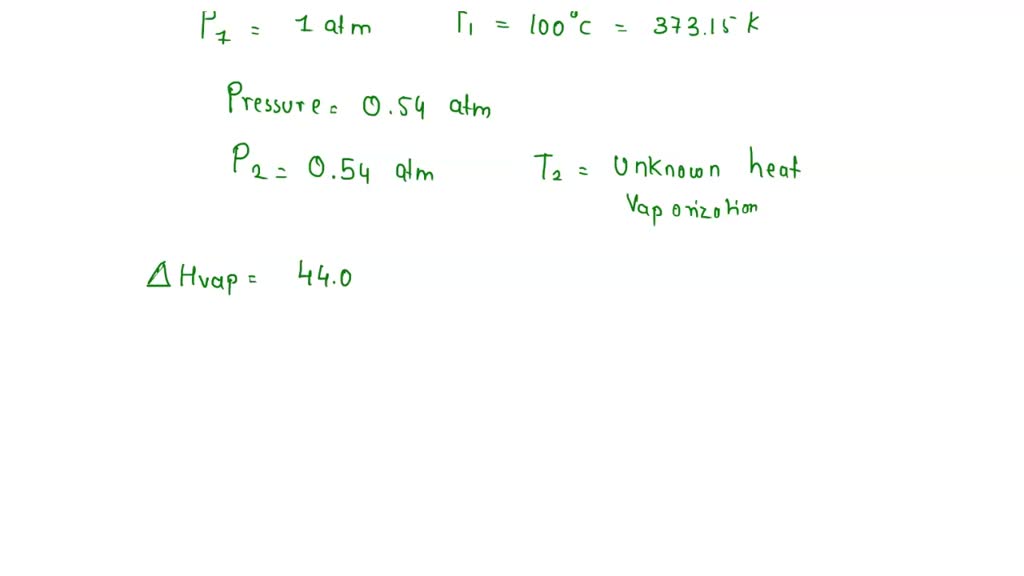 P1 = 1 atm T1 = 100°C = 373.15 K
Pressure = 0.54 atm
P2 = 0.54 atm T2 = Unknown heat
Vaporization
ΔHvap = 44.0